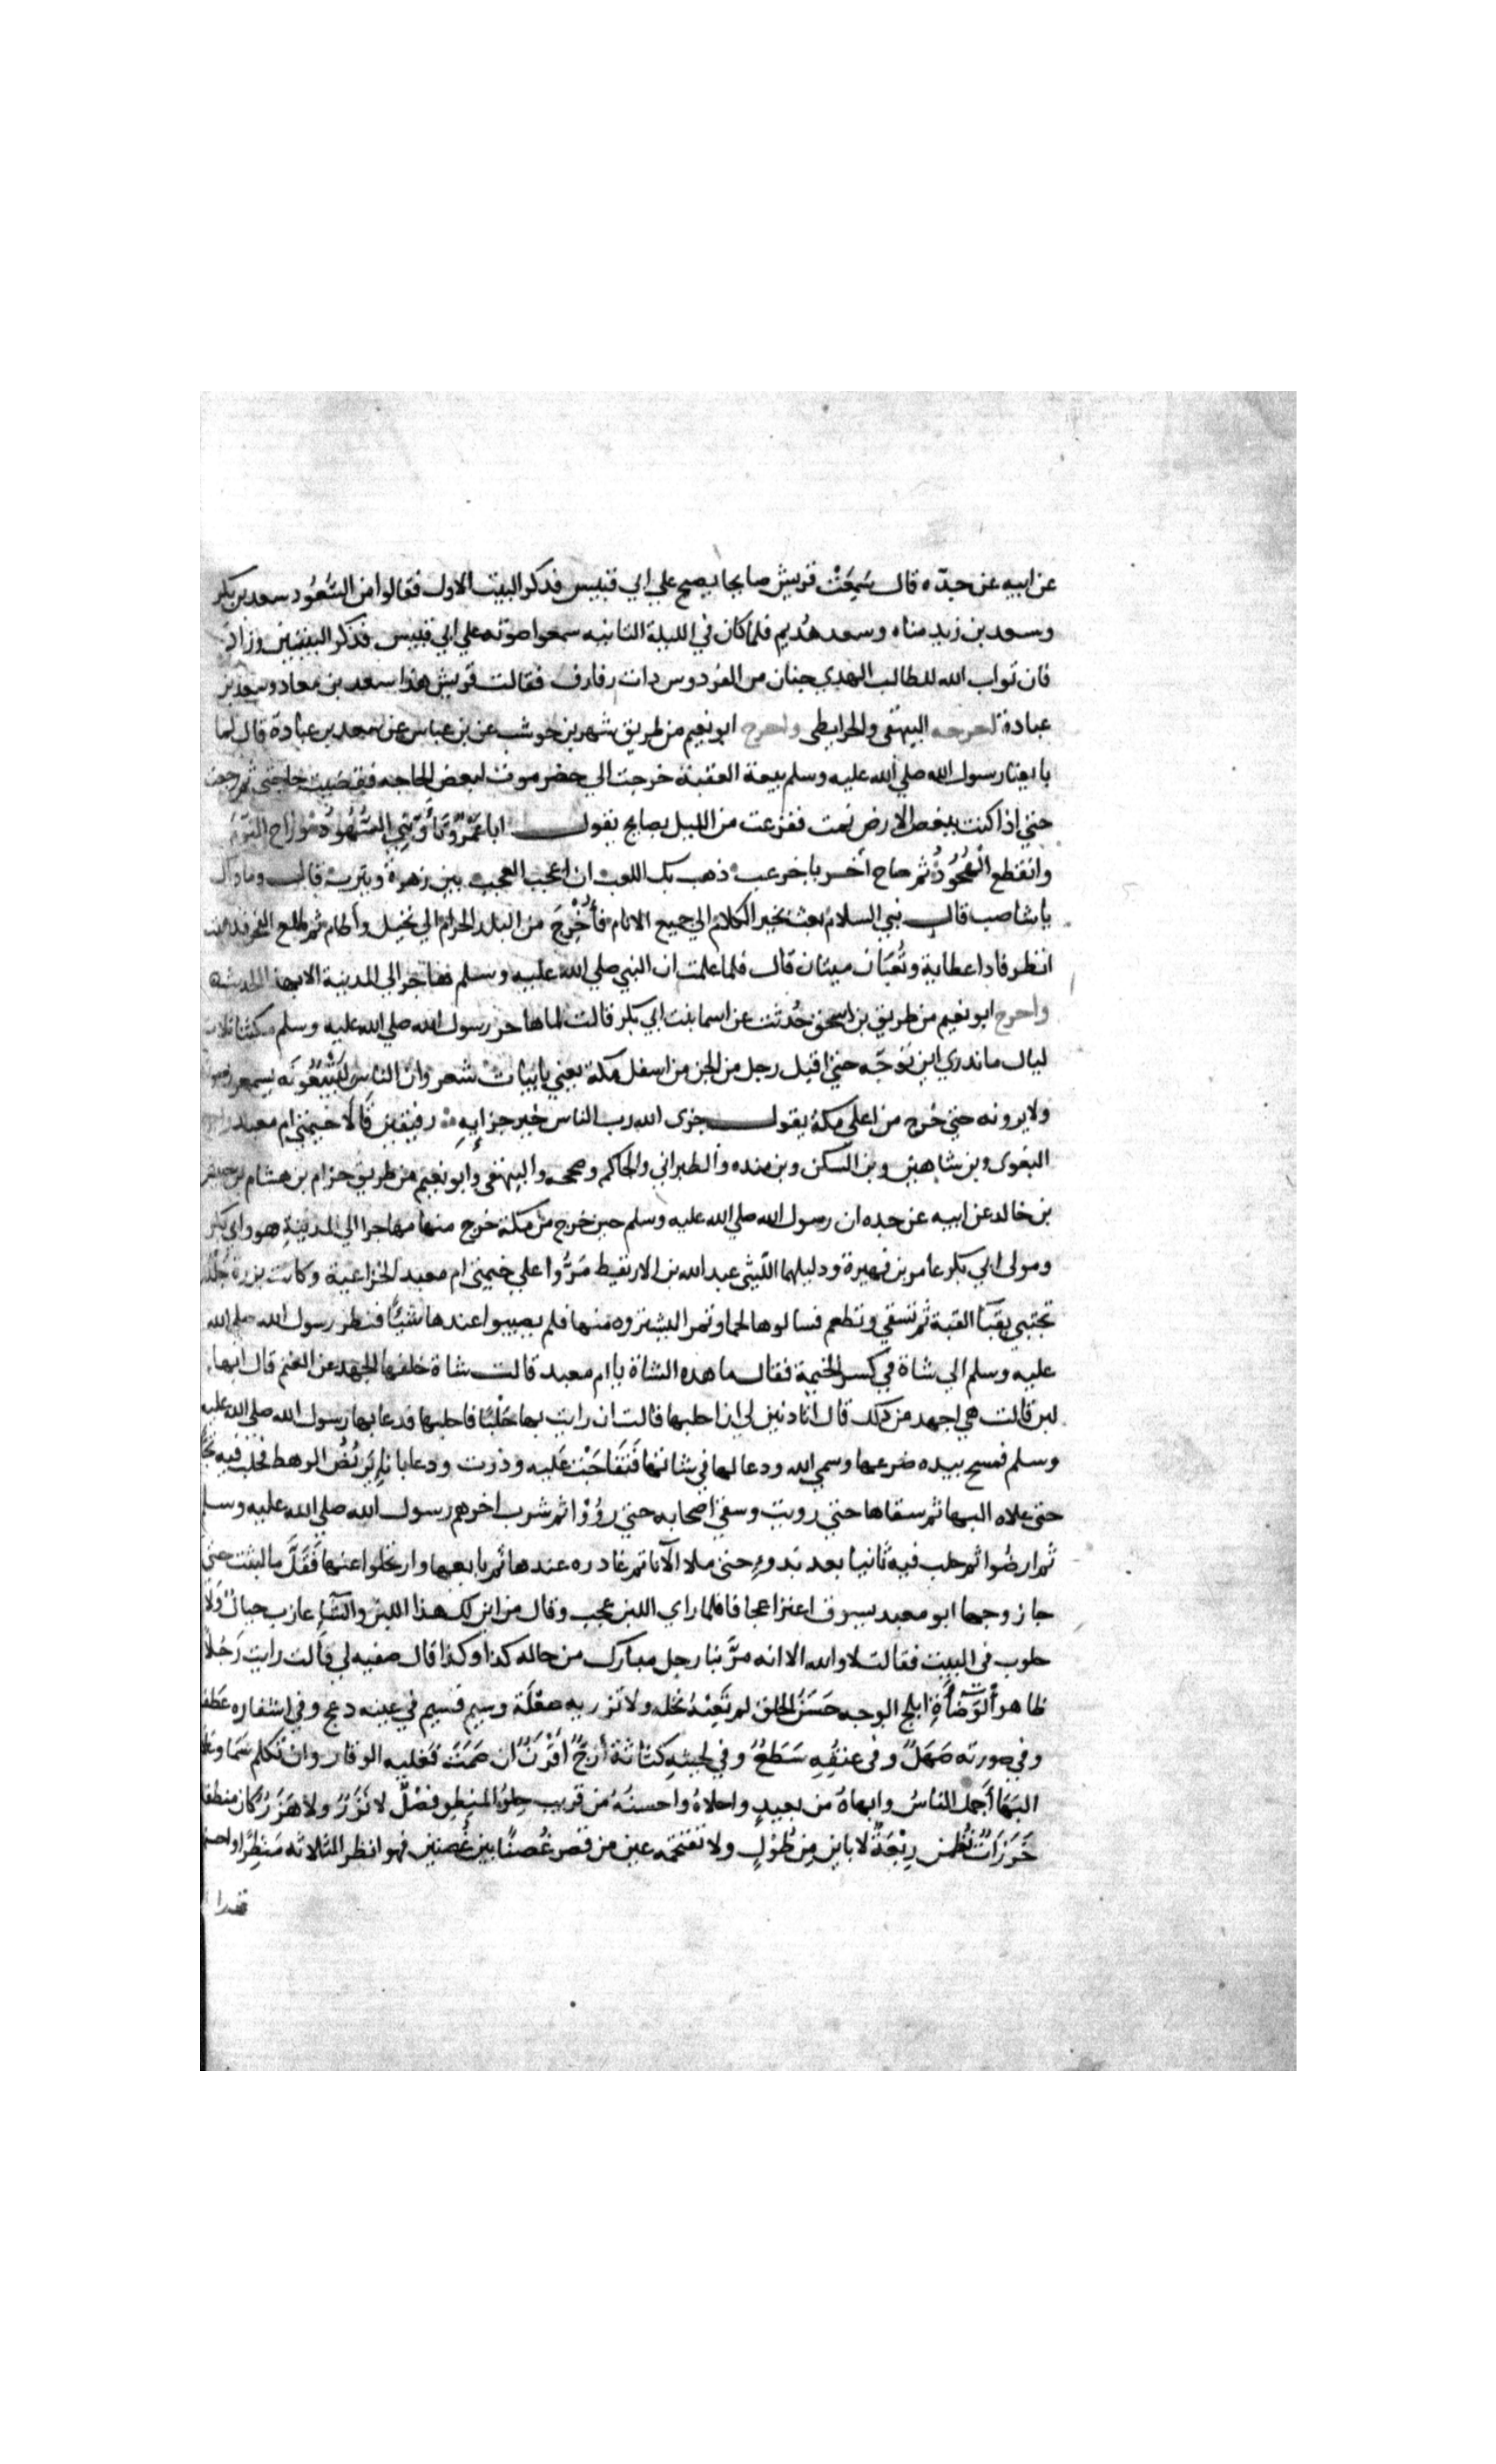 عن ابيه عن جدّه قال سَمِعَتْ قريش صايحا يصيح علي ابي قبيس فذكر البيت الاول فقالوا من السُّعُود سعد بن بكر
وسعد بن زيد مناه وسعد هُديم فلما كان في الليلة الثانيه سمعوا صوته علي ابي قبيس فذكر البيتين وزاد
فان ثواب الله للطالب الهدي جنان من الفردوس ذات رفارف فقالت قريش هذا سعد بن معاد وسعد بن
عبادة اخرجه البيهقى والخرايطى واخرج ابو نعيم من طريق شهر بن حوشب عن بن عباس عن سعد بن عبادة قال لما
بايعنا رسول الله صلي الله عليه وسلم بيعة العقبة خرجت الي حضرموت لبعض الحاجه فقضيت حاجتي ثم رجعت
حتي اذا كنت ببعض الارض نمت ففزعت من الليل بصايح يقول ابا عَمْرٍو تَأَوَّبَنِي السُّهُودُ وراح النوم
وانقطع الهُجُودُ ثم صاح آخر يا خرعب ذهب بك اللعب ان اعجب العجب بين زهرة ويثرب قال وما ذاك
يا شاصب قال نبي السلام بعث بخير الكلام الي جميع الانام فأُخْرِجَ من البلد الحرام الي نخيل وآطام ثم طلع الفجر فذهبت
انظر فاذا عظاية وثُعْبَان ميتان قال فلما علمت ان النبي صلي الله عليه وسلم هاجر الي المدينة الا بهذا الحديث
واخرج ابو نعيم من طريق بن اسحق حُدثت عن اسما بنت ابي بكر قالت لما هاجر رسول الله صلي الله عليه وسلم مكثنا ثلاث
ليال ما ندري اين تَوَجّه حتي اقبل رجل من الجن من اسفل مكة يغني بابيات شعر وان الناس ليَتْبَعُونَه يسمعون صوته
ولا يرونه حتي خرج من اعلي مكة يقول جزى الله رب الناس خير جزايِهِ رفيقين قَالَا خيمتي ام معبد
البغوى وبن شاهين وبن السكن وبن منده والطبراني والحاكم وصححه والبيهقى وابو نعيم من طريق حزام بن هشام بن حبيش
بن خالد عن ابيه عن جده ان رسول الله صلي الله عليه وسلم حين خرج من مكة خرج منها مهاجرا الي المدينةِ هو وابي بكر
ومولى ابي بكر عامر بن فهيرة ودليلهما اللّيثي عبد الله بن الارتقيط مَرُّوا علي خيمتي ام معبد الخزاعية وكانت برزة جَلْدة
تحتبي بفناء القبة ثم تسقي وتطعم فسالوها لحما وتمرا ليشتروه منها فلم يصيبوا عندها شَيئًا فنظر رسول الله صلي الله
عليه وسلم الي شاة في كسر الخيمة فقال ما هذه الشاة يا ام معبد قالت شاة خلفها الجهد عن الغنم قال ابها
لبن قالت هي اجهد من ذلك قال اتاذنين لي ان احلبها قالت ان رايت بها حَلْبًا فاحلبها فدعا بها رسول الله صلي الله عليه
وسلم فمسح بيده ضرعها وسمي الله ودعا لها في شاتها فَتَفَاجَّتْ عَليه ودرت ودعا باناءٍ يَرْبُضُ الرهط فحلب فيه ثجًّا
حتي علاه البها ثم سقاها حتي رويت وسقي اصحابه حتي رَوُوْا ثم شرب اخرهم رسول الله صلي الله عليه وسلم
ثم ارضُوا ثم حلب فيه ثانيا بعد بَدْوءٍ حتي ملا الآنا ثم غادره عندها ثم بايعها وارتحلوا عنها فَقَلَّ ما لبثت حتي
جا زوجها ابو معبد يسوق اعنزا عجافا فلما راي اللبن عجب وقال من اين لك هذا اللبن والشاء عازب حيال وَلا
حلوب في البيت فقالت لا والله الا انه مرَّ بنا رجل مبارك من حاله كذا وكذا قال صفيه لي قالت رايت رَجُلًا
ظاهر الوَضَأَةِ ابلج الوجه حَسَنُ الخلق لم تَعِبْهُ نحله ولا تزر به صعْلَة وسيم قسيم في عينه دعج وفي اشفاره عَطف
وفي صوته صَهَلٌ وفي عنقِهِ سَطَعٌ وفي لحيتِهِ كثاثة أَزَجُّ أَقْرَنُ ان صَمَتَ فَعَليه الوقار وان تكلم سَمَا وعلاه
البَهَا أَجمل الناسُ وابهاهُ من بعيدٍ واحلاهُ واحسنُهُ من قريب حلوُ المنطِق فصْلٌ لا نَزْرٌ ولا هَزَرٌ كان منطقه
خَرَزَاتُ نظمن رِبْعَةٌ لا باين مِن طُوْلٍ ولا تقتحمه عين من قصر غُصنًا بين غُصنين فهو انظر الثلاثه مَنْظرًا واحسنهم
قدرا